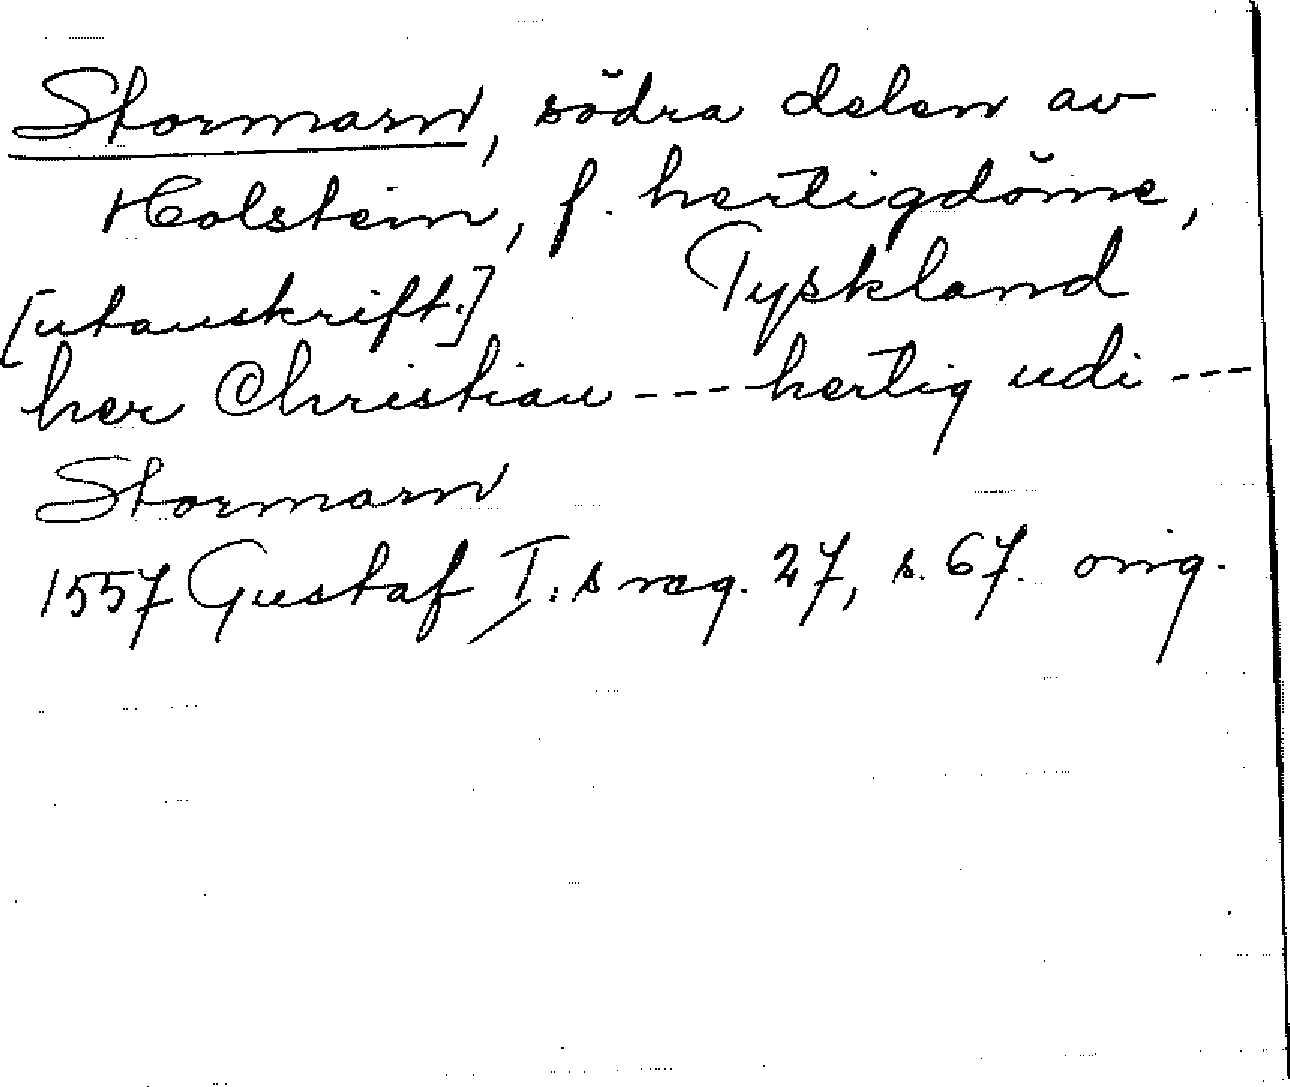 Stormarn, södra delen av
Holstein, f. hertigdöme,
Tyskland
[utanskrift:]
her Christian --- hertig udi ---
Stormarn
1557 Gustaf I:s reg. 27, s. 67. orig.